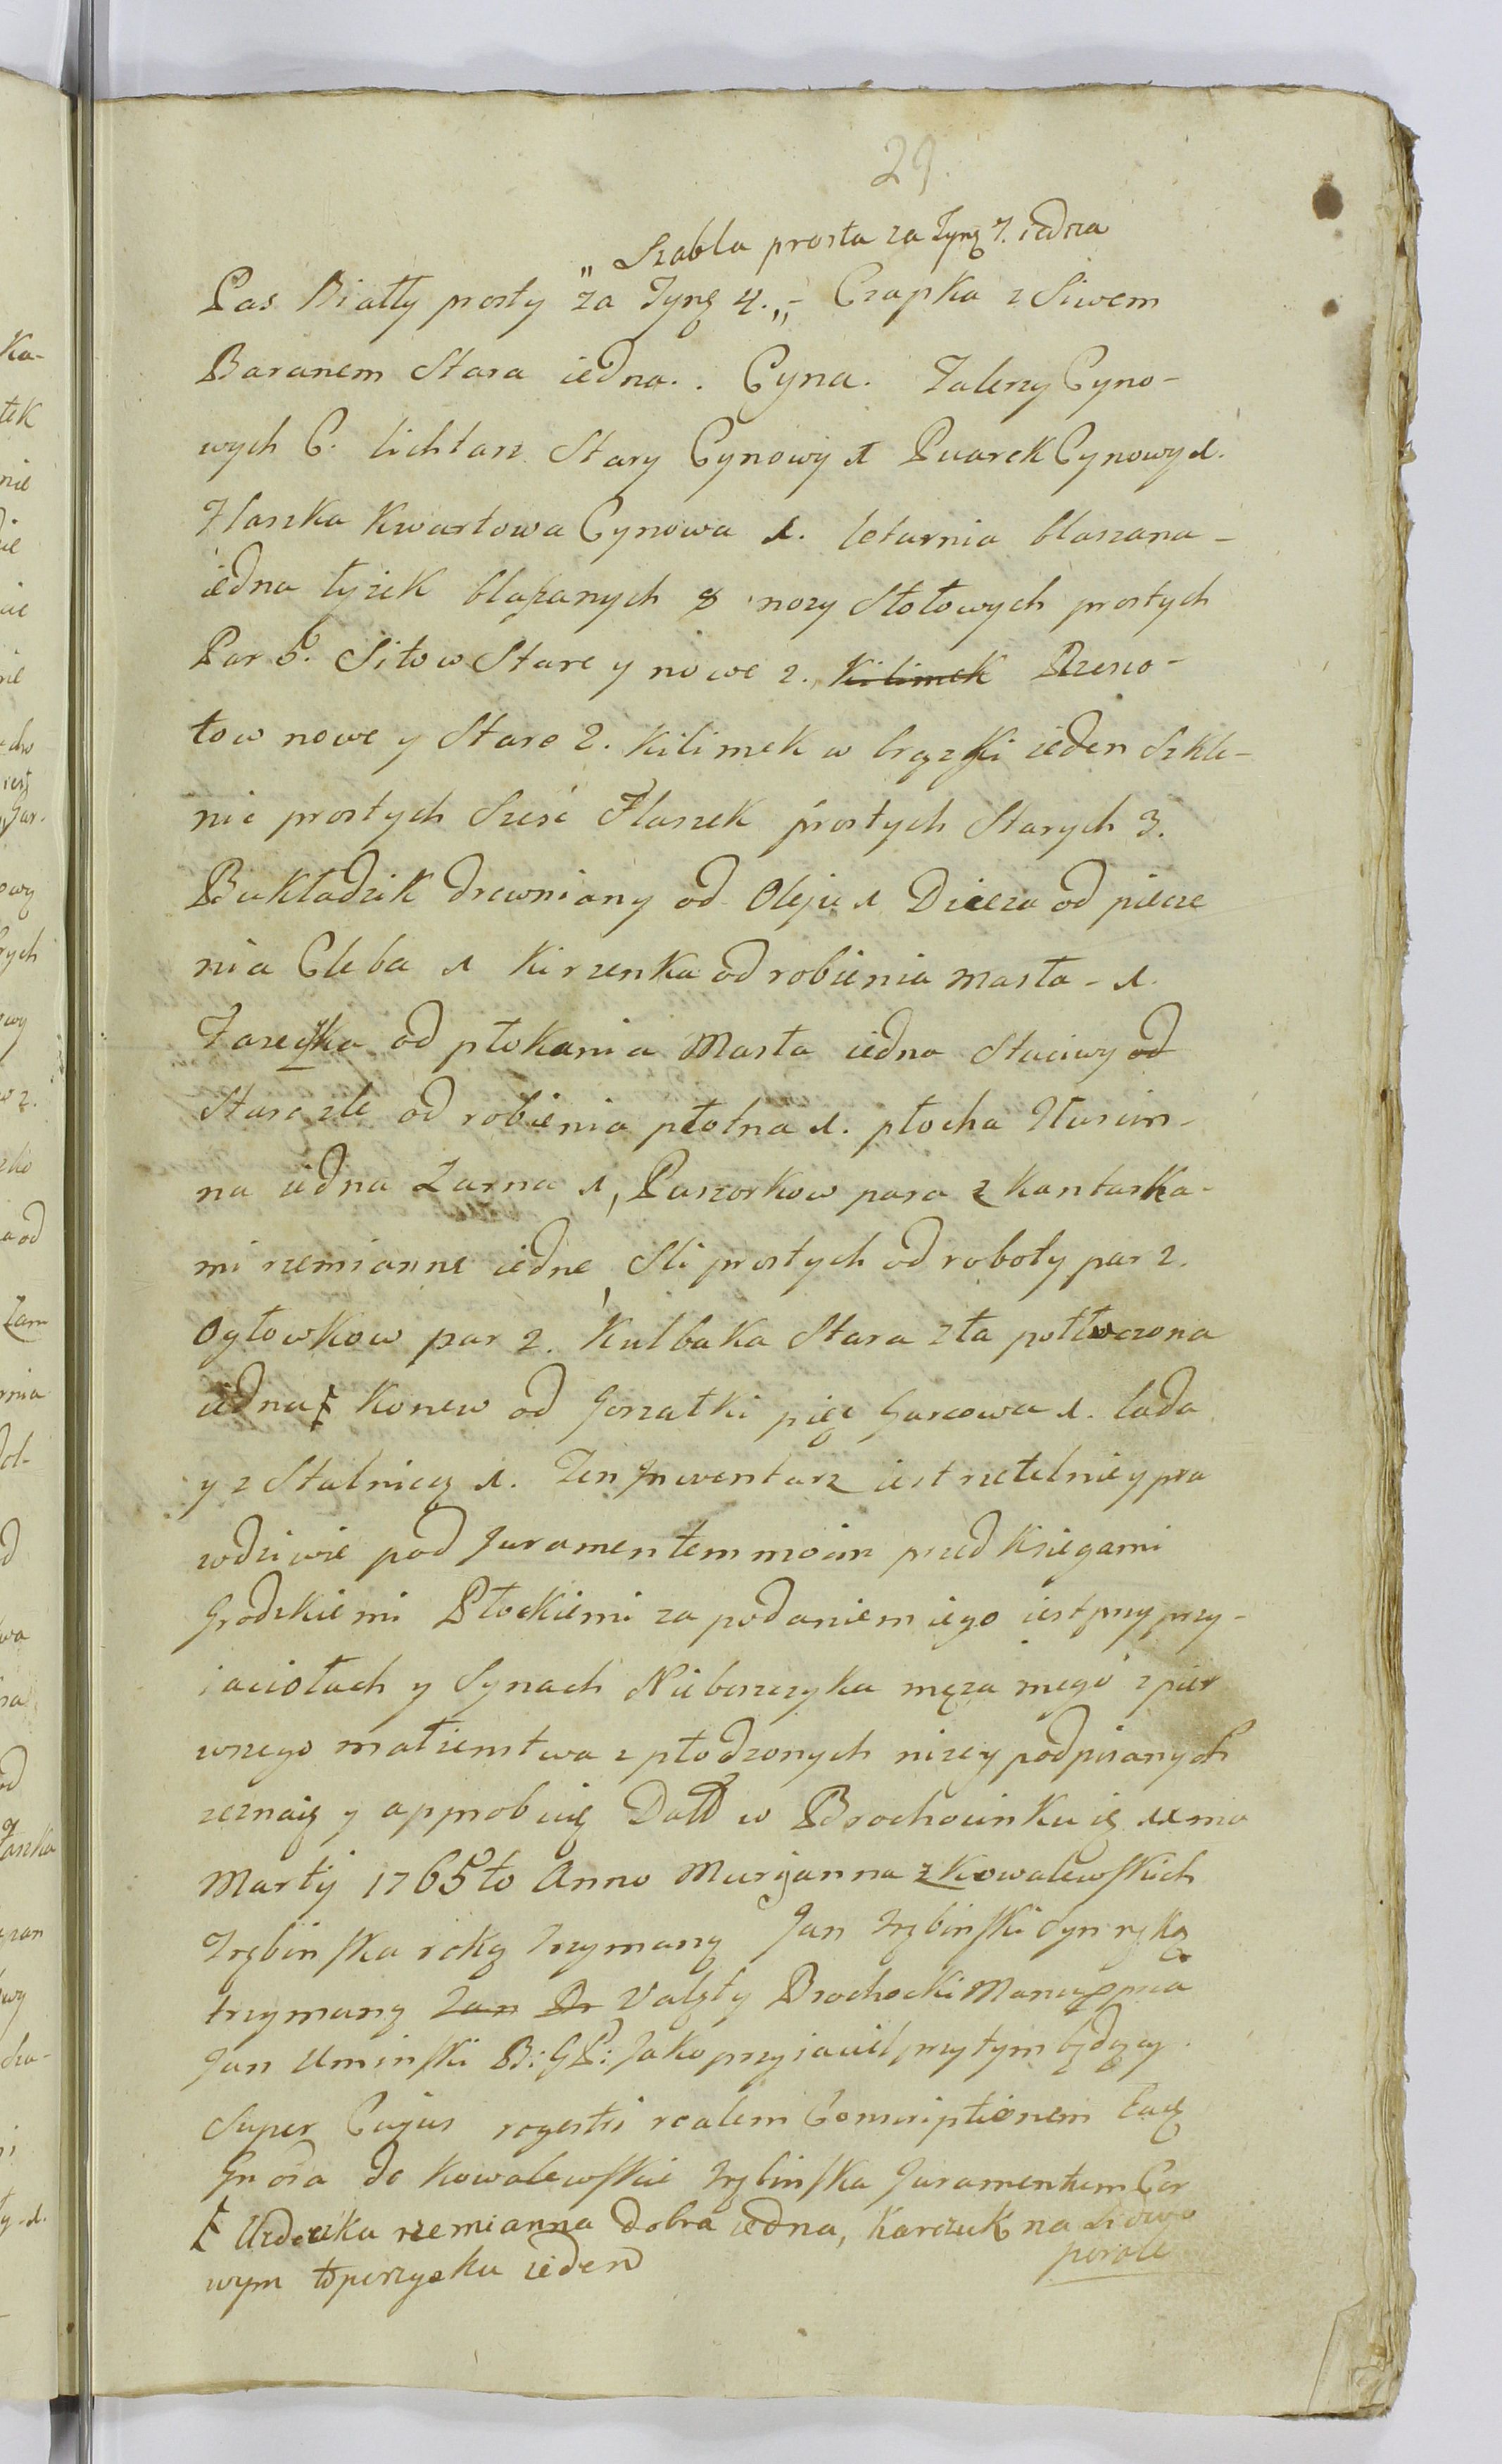 29.
„ Szabla prosta za Tynf 7. iedna
Pas Biały prosty za Tynf 4. „ - Czapka z Siwem
Baranem Stara iedna. . Cyna. Talerzy Cyno-
wych 6. lichtarz Stary Cynowy 1 Puarek Cynowy 1.
Flaszka Kwartowa Cynowa 1. letarnia blaszana -
iedna łyżek blaszanych 8 nozy Stołowych prostych
Par 6. Sitow Stare y nowe 2. Kilimek Rzeszo-
tow nowe y Stare 2. Kilimek w brązki ieden Szkle-
nic prostych Szesć Flaszek prostych Starych 3.
Bukładzik drewniany od Oleju 1 Dzieza od piecze
nia Chleba 1 Kirzenka od robienia Masła - 1.
od płokania Masła iedna Staciwy od
Stare złe od robienia płotna 1. płocha
na iedna Zarna 1, Puszorkow para z kantarka-
mi rzemianne iedne, Sli prostych od roboty par 2.
Ogłowkow par 2. Kulbaka Stara zła potłuczona
iedna ⱡ Konew od Gorzałki pięc Garcowa 1. lada
y z Stalnicą 1. Ten Inwentarz iest rzetelnie y pra
wdziwie pod Juramentem moim przed Ksiegami
Grodzkiemi Płockiemi za podaniem iego iest przy przy-
iaciołach y Synach Nieboszczyka męza mego z pier
wszego małzenstwa z płodzonych nizey podpisanych
zeznaię y approbuię Datt w Brochocinku 11 mo
Martij 1765to Anno Maryanna z Kowalewskich
Trębinska ręką trzymaną Jan Trębinski Syn ręką
trzymaną Jan Br Valęty Brochocki Manu ppria
Jan Uminski B: G P: Jako przyiaciel przytym będący.
Super Cujus regestri realem Conscriptionem Eadem
Gnosa de Kowalewskie Trębinska Juramentum Cor
ⱡ Uzdeczka rzemianna dobra iedna, Karczuk na
wym toporzysku ieden
porale